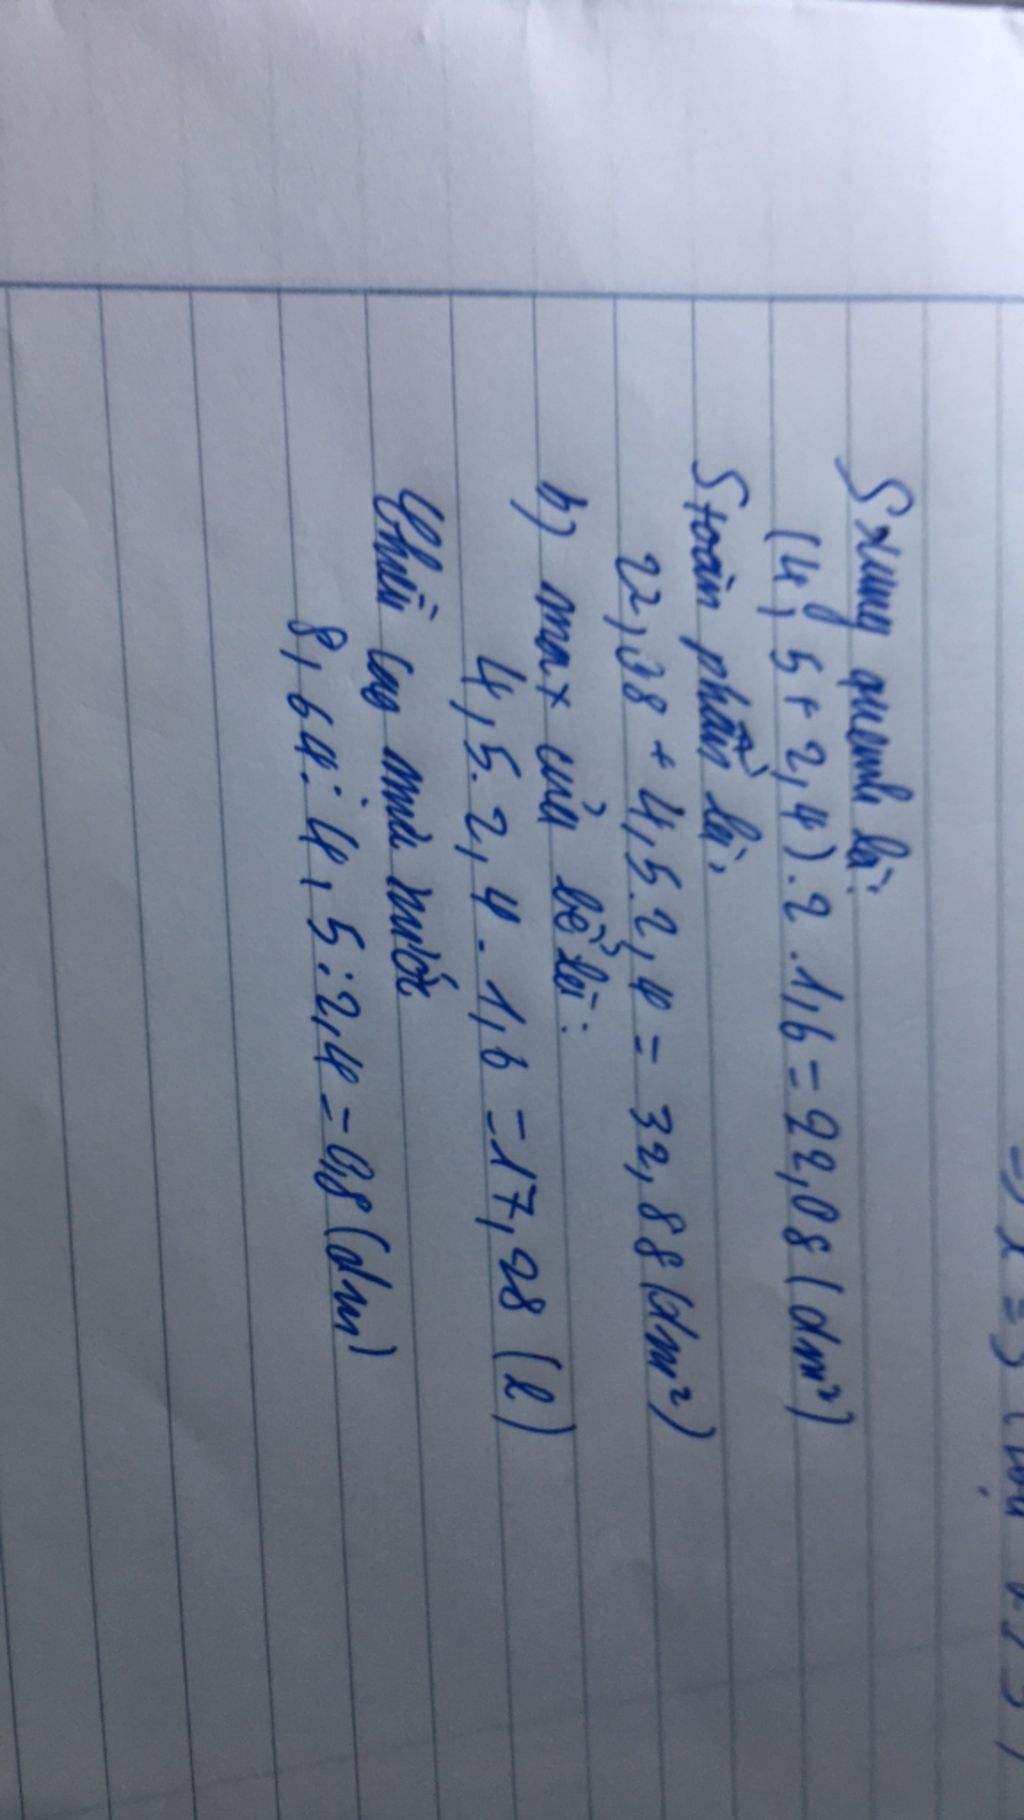 S xung quanh là:
(4,5+2,4).2.1,6=22,08(dm²)
S toàn phần là:
22,08+4,5.2,4=32,88(dm²)
b) max của bể là:
4,5.2,4.1,6=17,28(l)
Chiều cao mực nước
8,64:4,5:2,4=0,8(dm)